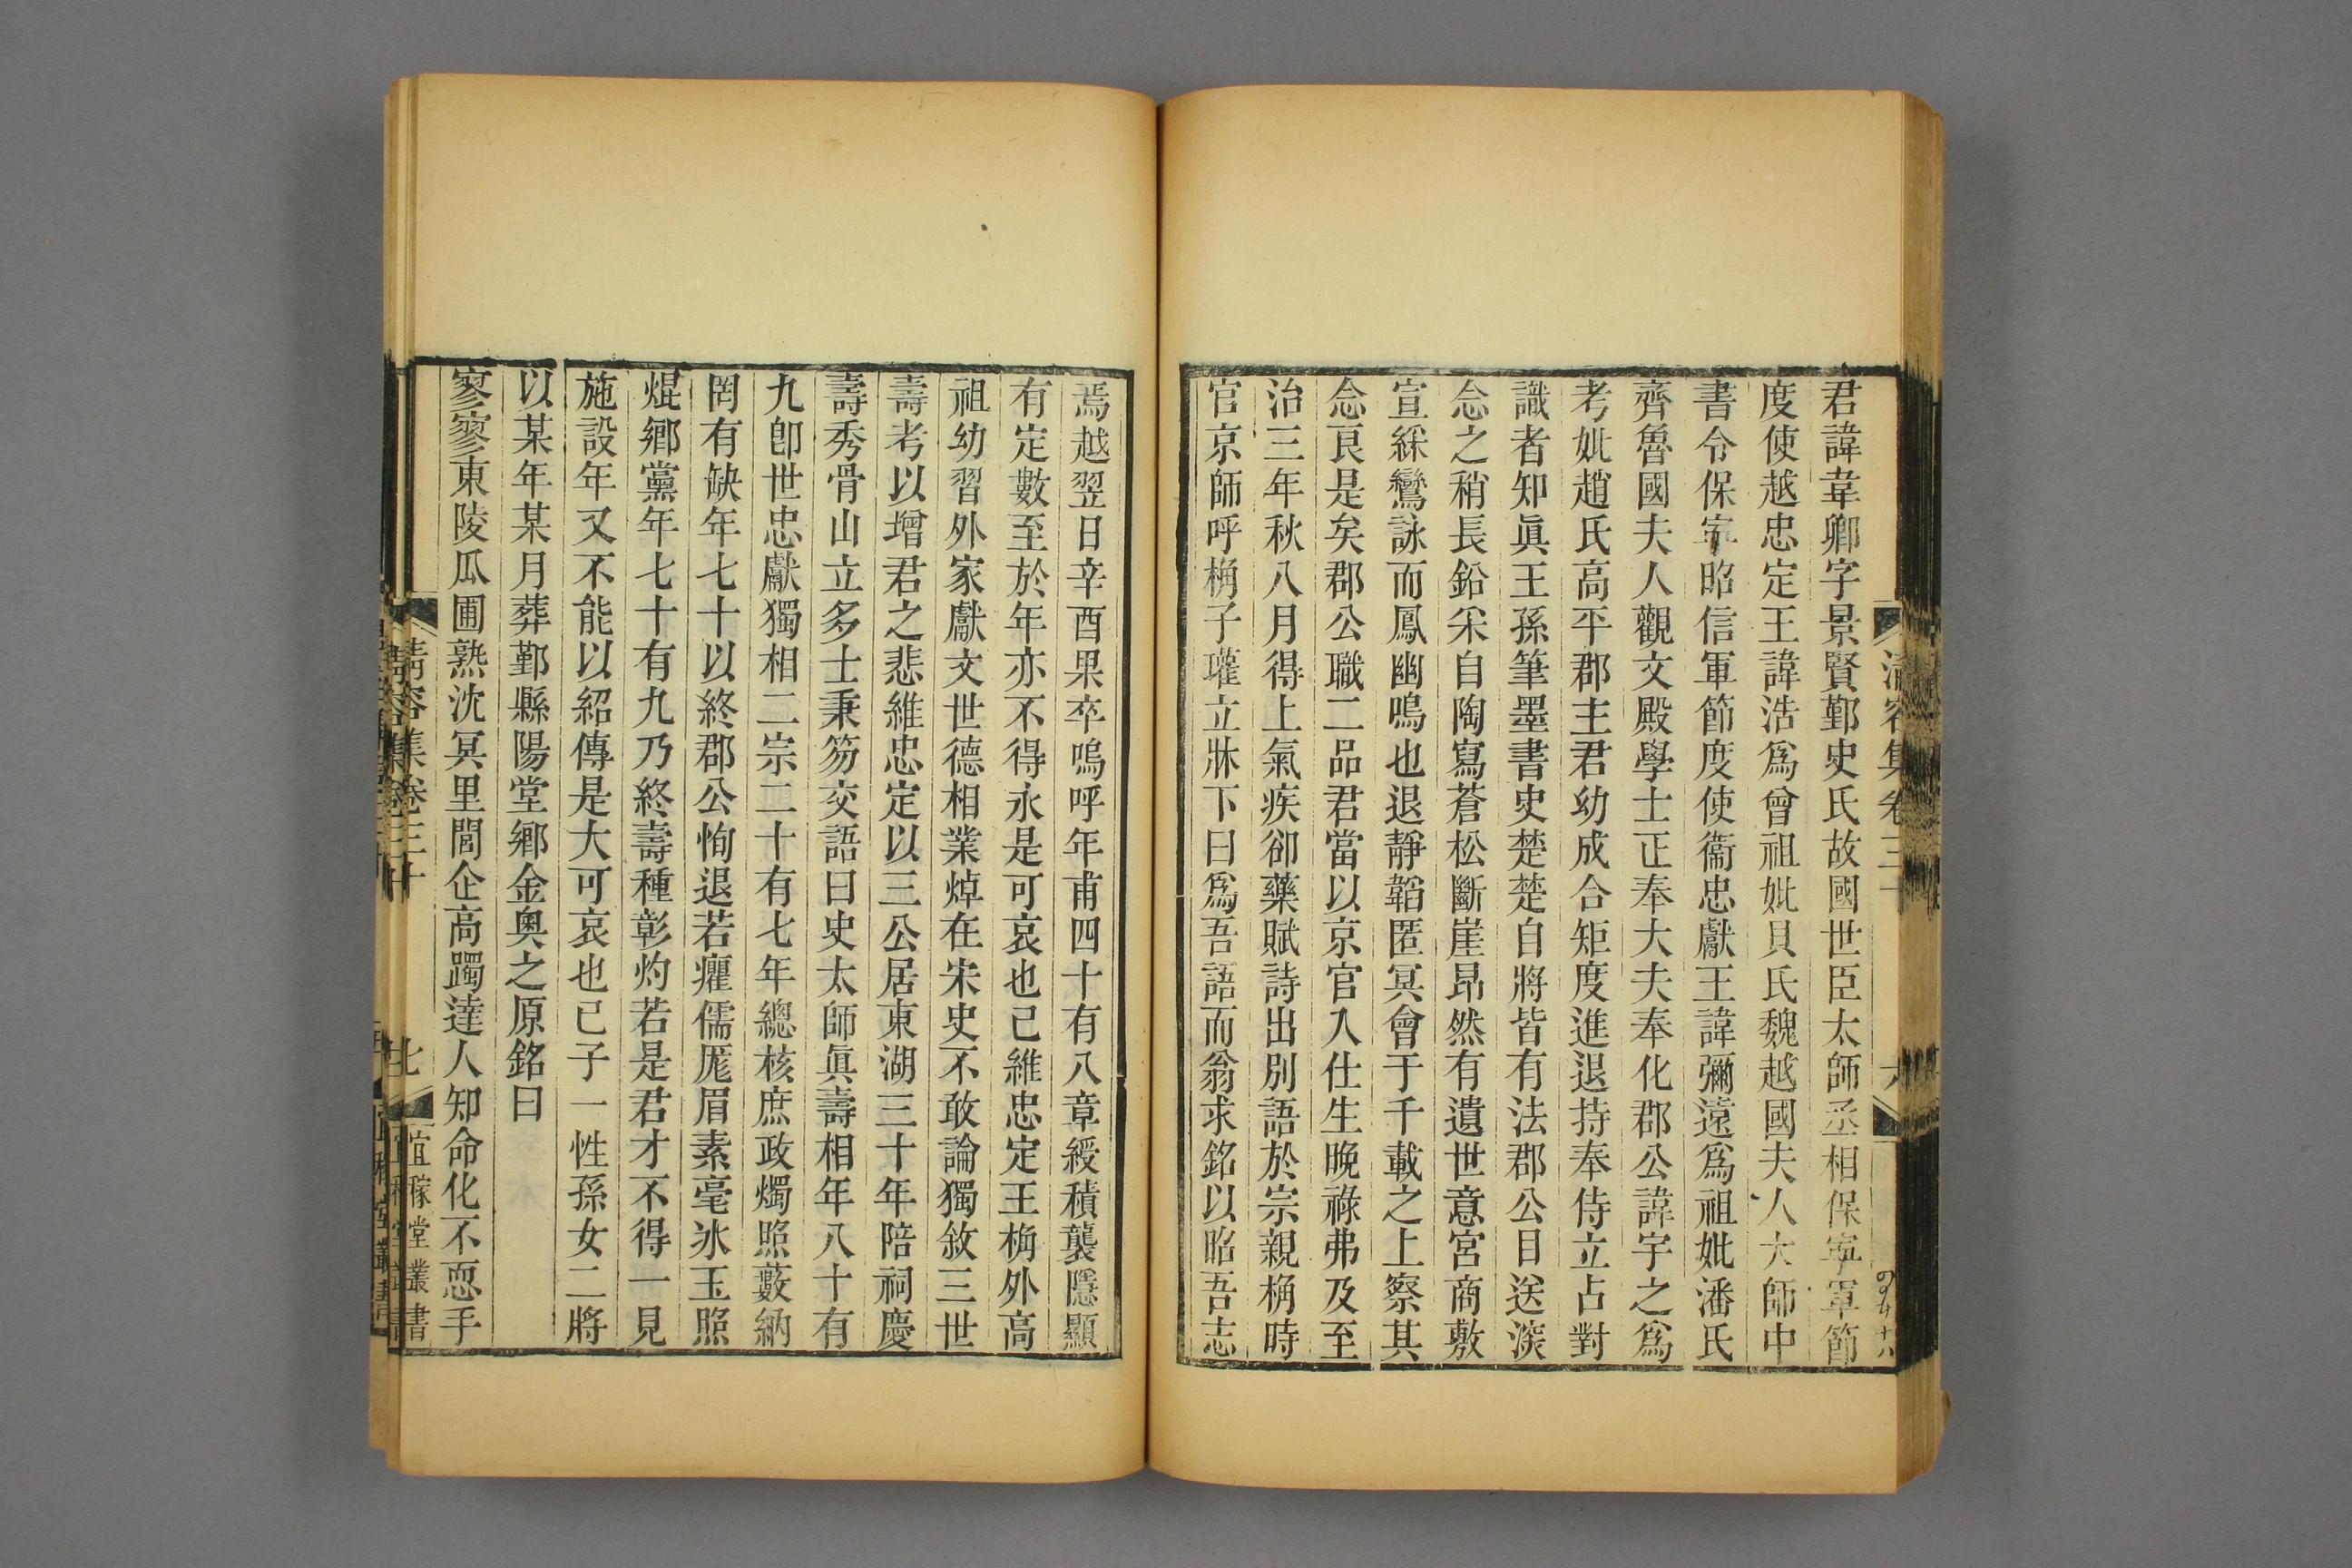 君諱韋卿字景賢鄞史氏故國世臣太師丞相保寧軍節
度使越忠定王諱浩爲曾祖妣貝氏魏越國夫人太師中
書令保寧昭信軍節度使衞忠獻王諱彌遠爲祖妣潘氏
齊魯國夫人觀文殿學士正奉大夫奉化郡公諱宇之爲
考妣趙氏高平郡主君幼成合矩度進退持奉侍立占對
識者知眞王孫筆墨書史楚楚自將皆有法郡公目送深
念之稍長鉛采自陶寫蒼松斷崖昂然有遺世意宮商敷
宣綵鸞詠而鳳幽鳴也退靜韜匿冥會于千載之上察其
念良是矣郡公職二品君當以京官入仕生晚祿弗及至
治三年秋八月得上氣疾卻藥賦詩出別語於宗親桷時
官京師呼桷子瓘立牀下曰爲吾語而翁求銘以昭吾志
焉越翌日辛酉果卒嗚呼年甫四十有八章綬積襲隱顯
有定數至於年亦不得永是可哀也已維忠定王桷外高
祖幼習外家獻文世德相業焯在宋史不敢論獨敘三世
壽考以增君之悲維忠定以三公居東湖三十年陪祠慶
壽秀骨山立多士秉笏交語曰史太師眞壽相年八十有
九卽世忠獻獨相二宗二十有七年總核庶政燭照藪納
罔有缺年七十以終郡公恂退若癯儒厖眉素毫冰玉照
焜鄉黨年七十有九乃終壽種彰灼若是君才不得一見
施設年又不能以紹傳是大可哀也已子一性孫女二將
以某年某月葬鄞縣陽堂鄉金奧之原銘曰
寥寥東陵瓜圃熟沈冥里閭企高躅達人知命化不恧手
清容集卷三十
宜稼堂叢書